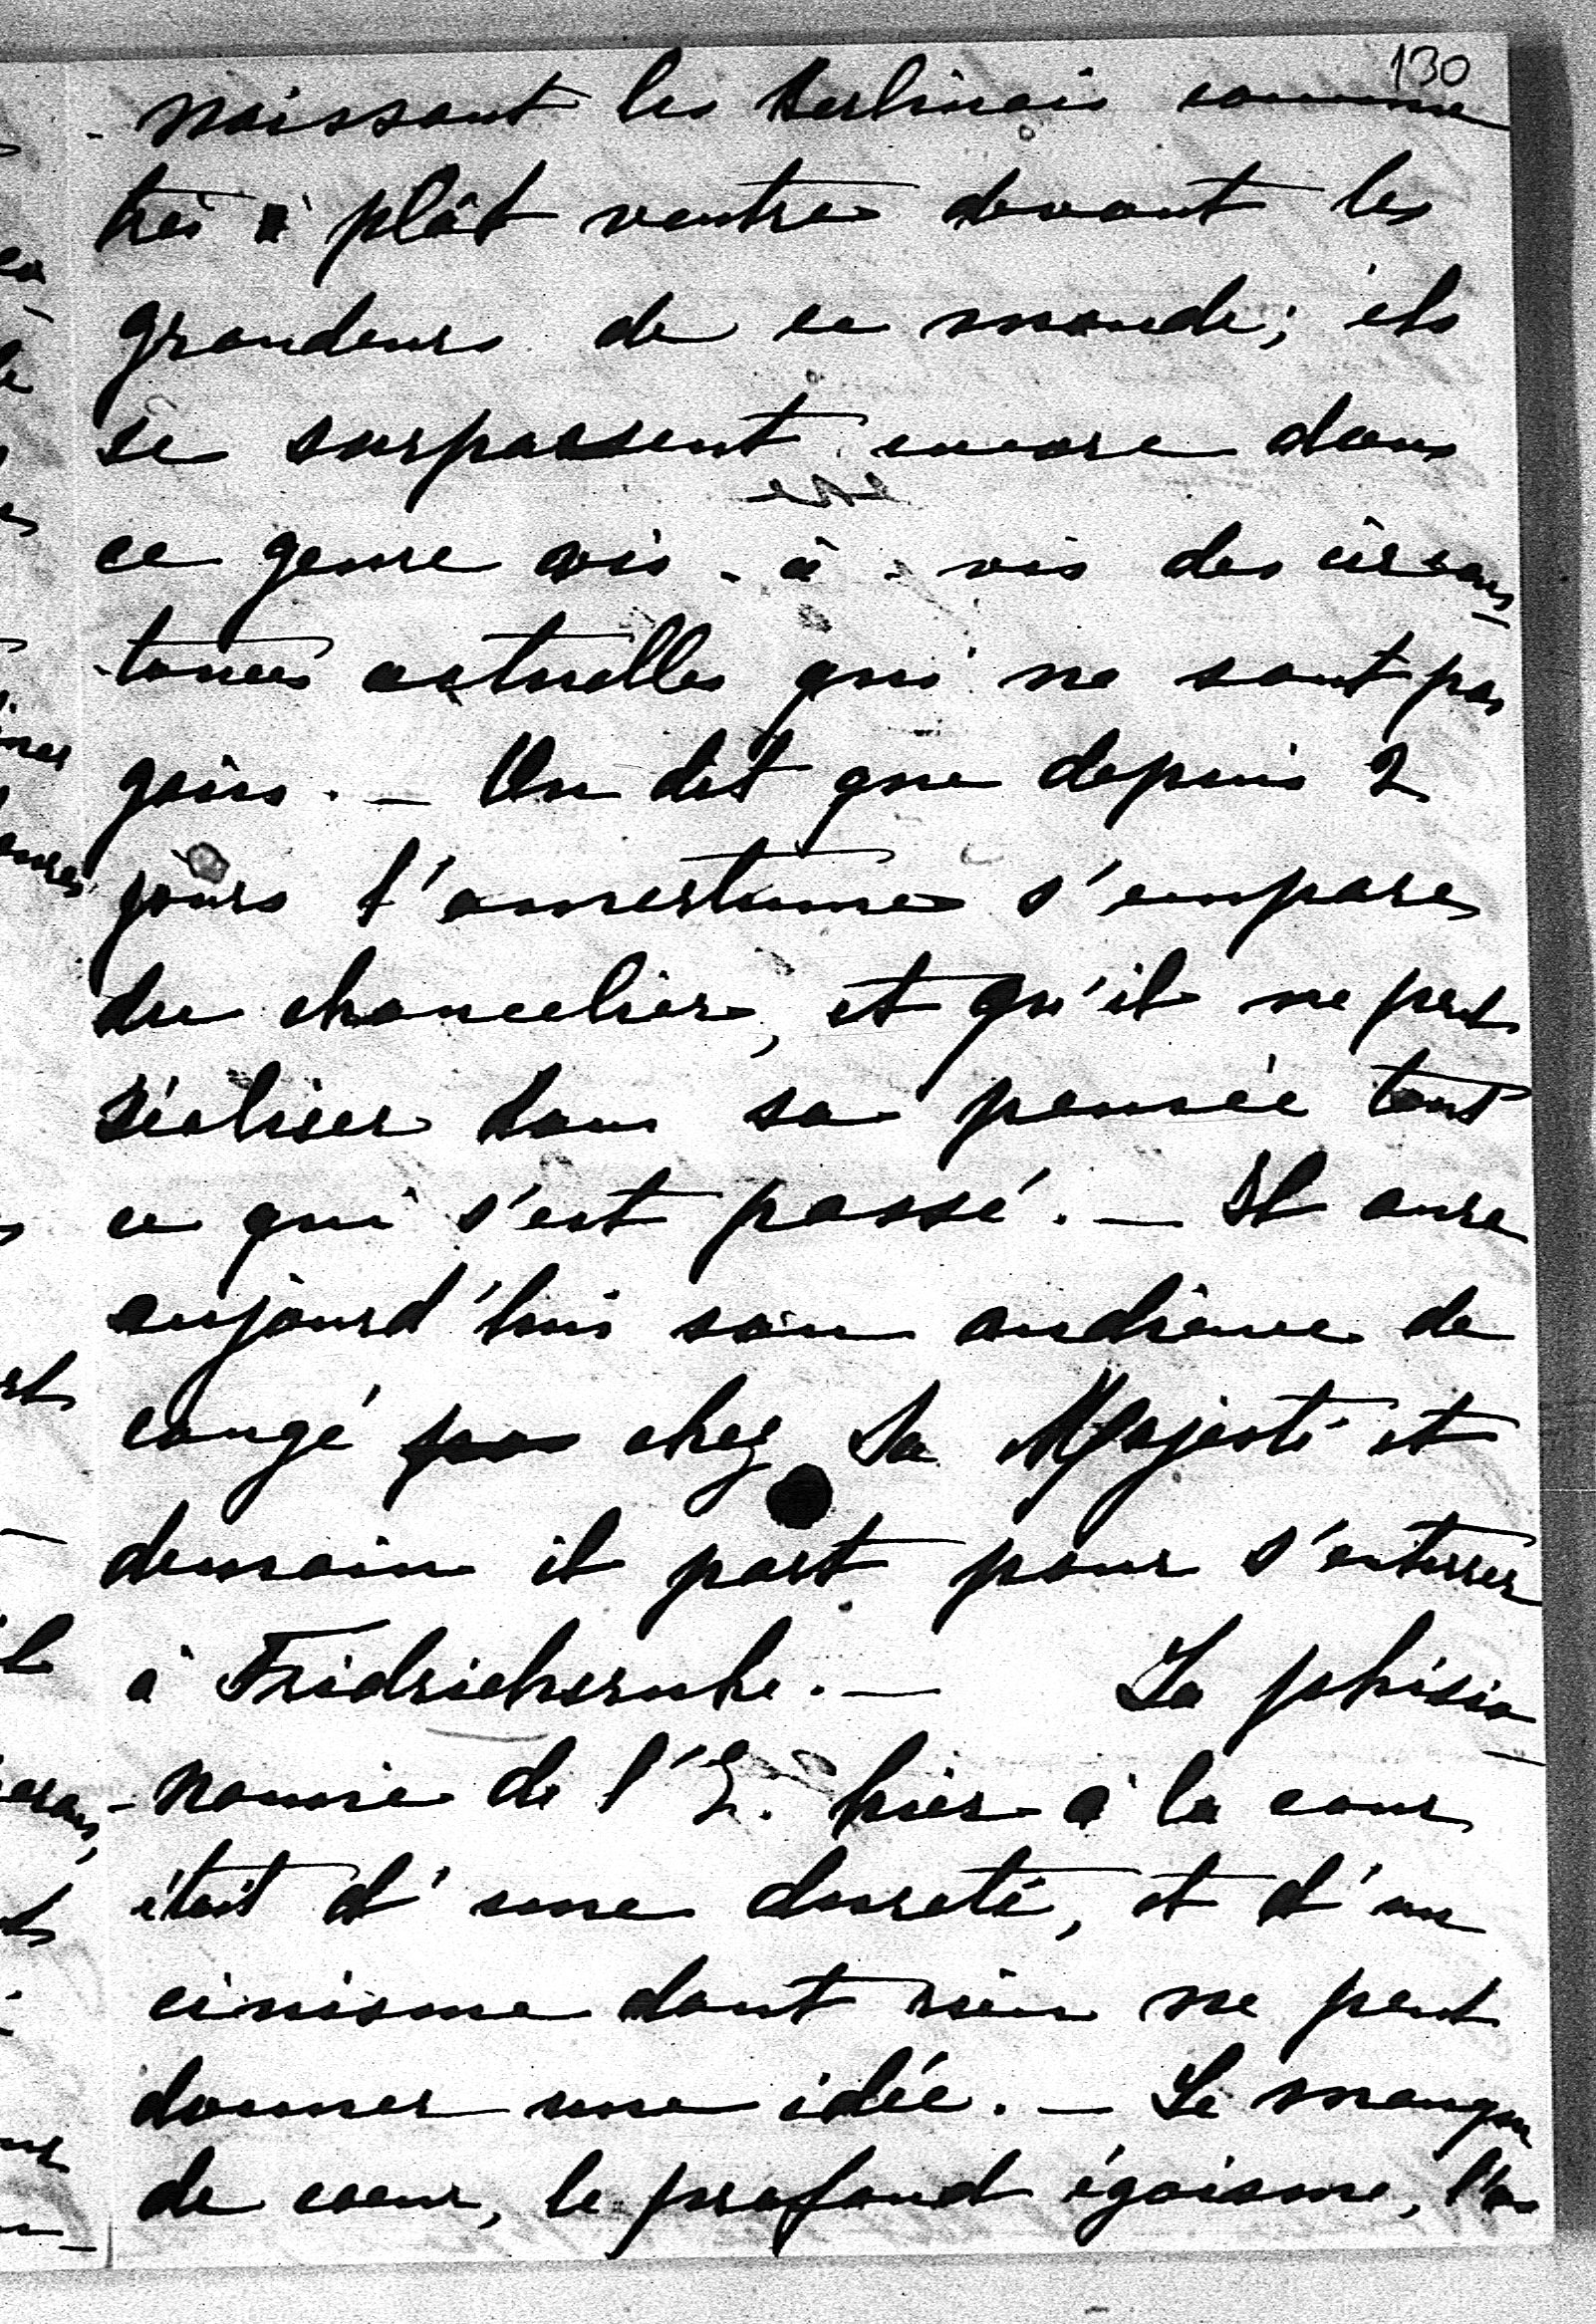 130
- naissant les Berlinois comme
très à plât ventre devant les
grandeurs de ce monde; ils
se surpassent encore dans
ce genre vis-à-vis des circons-
tances actuelles qui ne sont pas
gaies. — On dit que depuis 2
jours l'amertume s'empare
du chancelier, et qu'il ne peut
réaliser dans sa pensée tout
ce qui s'est passé. — Il aura
aujourd'hui son audience de
congé chez Sa Majesté et
demain il part pour s'enterrer
à Fridrichsruhe. — La phisio-
-nomie de l'E. hier à la cour
était d'une dureté, et d'un
cinisme dont rien ne peut
donner une idée. — Le manque
de coeur, le profond égoisme,